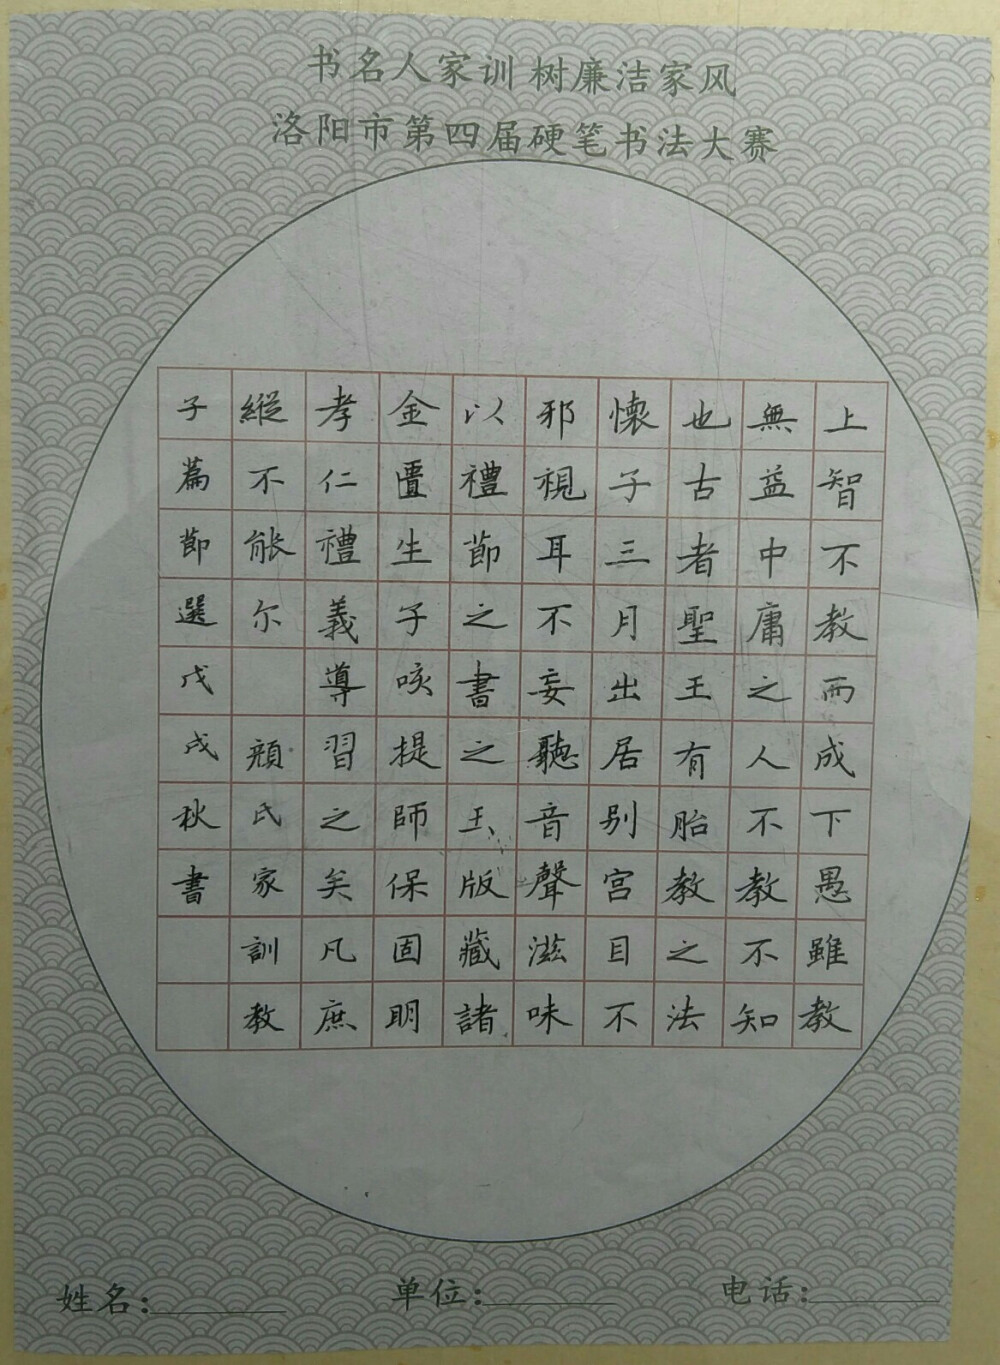 书名人家训 树廉洁家风
洛阳市第四届硬笔书法大赛
上智不教而成下愚雖教
無益中庸之人不教不知
也古者聖王有胎教之法
懷子三月出居别宫目不
邪視耳不妄聽音聲滋味
以禮節之書之玉版藏諸
金匱生子咳提師保固明
孝仁禮義導習之矣凡庶
縱不能尔 顔氏家訓教
子篇節選戊戌秋書
姓名： 单位： 电话：